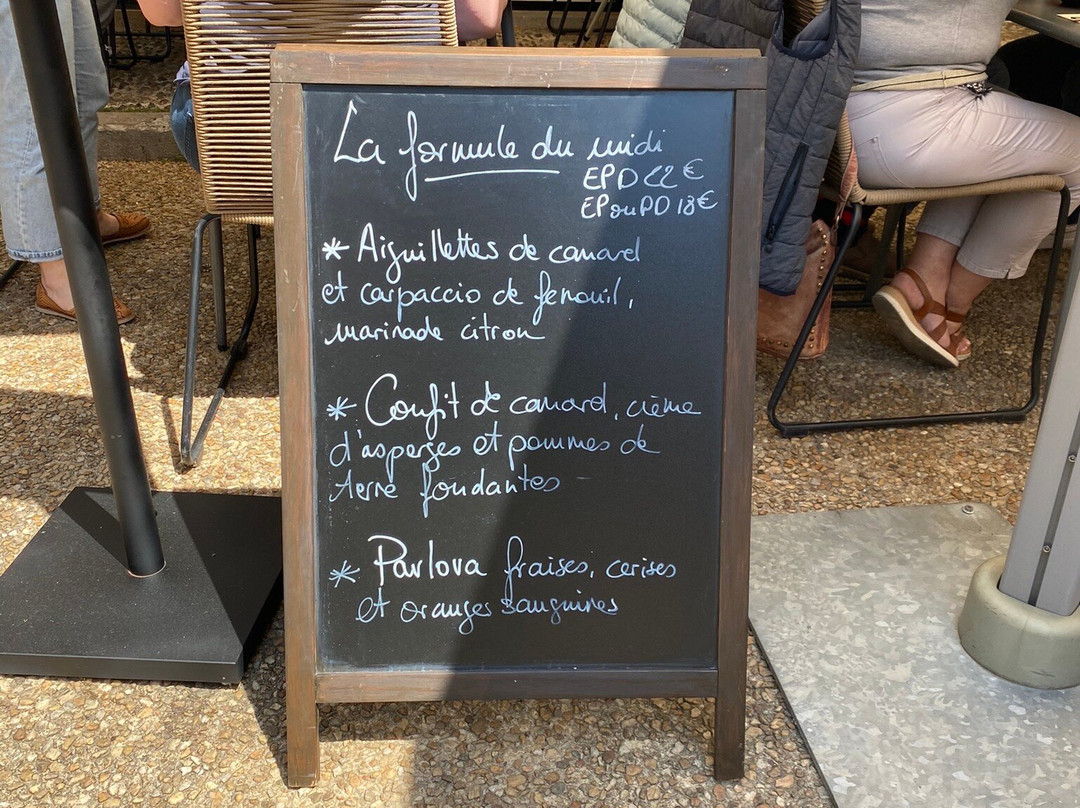 La formule du midi
EPD 22 €
EP ou PD 18 €
* Aiguillettes de canard
et carpaccio de fenouil,
marinade citron
* Confit de canard, crème
d'asperges et pommes de
terre fondantes
* Pavlova fraises, cerises
et oranges sanguines